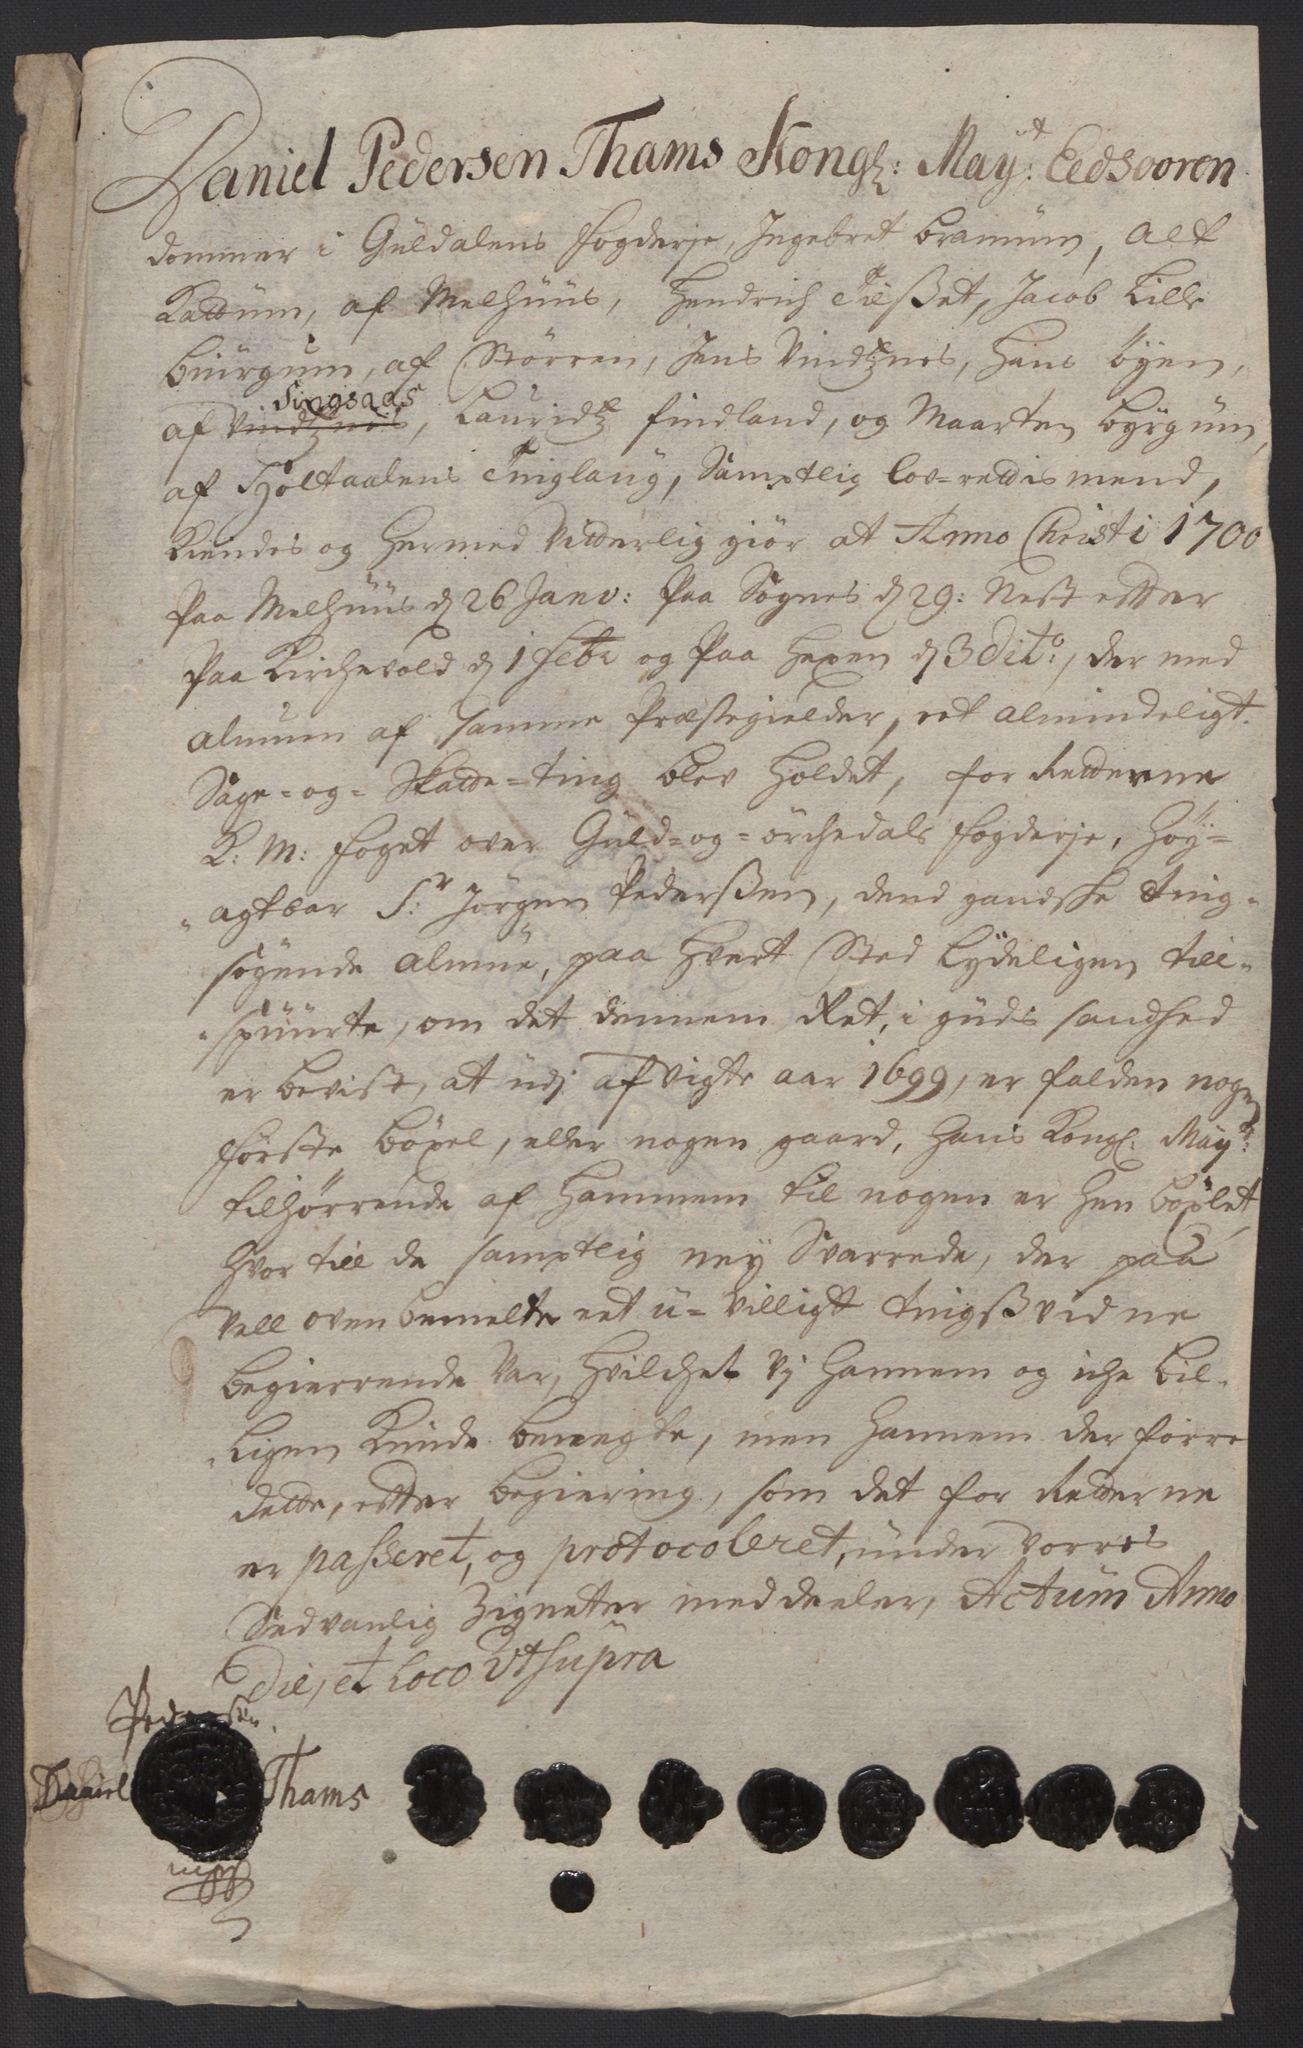 Daniel Pedersen Thams Kongl: May:t Eedsvoren
dommer i Guldalens fogderje, Ingebret bramum, Alf
Kattum, af Melhuus, Hendrich Fieset, Jacob Lille
biürgum, af Størren, Jens Vindtznes, Hans øyen,
af Vindtznes Singsaas, Lauridtz findland, og Maarten byrgum,
af Holtaalens Tinglaug, Samptlig lov-rettis mend,
Kiendes og hermed Vitterlig giør at Anno Christi 1700
Paa Melhuus d 26 Janv: Paa Sognes d 29: Nest etter
Paa Kirchevold d 1 febr og Paa Hexen d 3 Dito, der med
almuen af samme Præstegielder, eet almindeligt
Sage-og-Skatte-ting blev holdet, for Retterne
K: M: foget over Guld-og-ørchedals fogderje, Høy-
agtbar Sr: Jørgen Pederssen, dend gandske ting-
søgende almue, paa hvert Sted lydeligen till-
spuurte, om det dennem Ret, i guds sandhed
er bevist, at udj afvigte aar 1699, er falden nogen
første böxel, eller nogen gaard, Hans Kongl. Mayts:
tilhørrende af hannem til nogen er hen böxlet,
hvor till de samptlig ney Svarrede, der paa
Vell ovenbemelte eet u-villigt tingssvidne
begierrende Var, hvilchet Vj hannem og iche bil-
ligen Kunde benegte, men hannem der forre
dette, etter begiering, som det for Retterne
er passeret, og protocoleret, under vorres
Sedvanlig Zigneter meddeeler, Actum Anno
Die, et Loco Ut supra
Pedersen
Daniel Thams
mpp